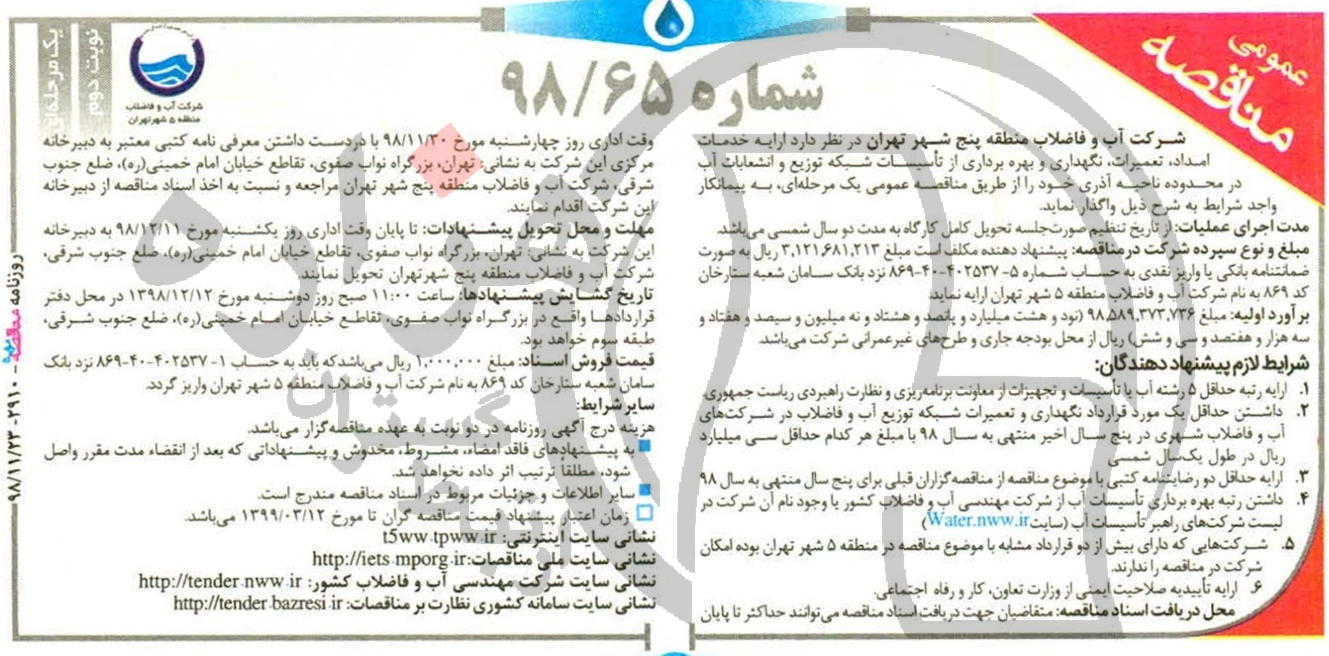 عمومی
مناقصه
شماره ۹۸/۶۵
یک مرحله‌ای
نوبت دوم
شرکت آب و فاضلاب
منطقه ۵ شهر تهران
شرکت آب و فاضلاب منطقه پنج شهر تهران در نظر دارد ارایه خدمات
امداد، تعمیرات، نگهداری و بهره برداری از تأسیسات شبکه توزیع و انشعابات آب
در محدوده ناحیه آذری خود را از طریق مناقصه عمومی یک مرحله‌ای، به پیمانکار
واجد شرایط به شرح ذیل واگذار نماید.
مدت اجرای عملیات: از تاریخ تنظیم صورت‌جلسه تحویل کامل کارگاه به مدت دو سال شمسی می‌باشد.
مبلغ و نوع سپرده شرکت در مناقصه: پیشنهاد دهنده مکلف است مبلغ ۳,۱۲۱,۶۸۱,۲۱۳ ریال به صورت
ضمانتنامه بانکی یا واریز نقدی به حساب شماره ۵-۴۰۲۵۳۷-۴۰-۸۶۹ نزد بانک سامان شعبه ستارخان
کد ۸۶۹ به نام شرکت آب و فاضلاب منطقه ۵ شهر تهران ارایه نماید.
برآورد اولیه: مبلغ ۹۸,۵۸۹,۳۷۳,۷۳۶ (نود و هشت میلیارد و پانصد و هشتاد و نه میلیون و سیصد و هفتاد و
سه هزار و هفتصد و سی و شش) ریال از محل بودجه جاری و طرح‌های غیرعمرانی شرکت می‌باشد.
شرایط لازم پیشنهاد دهندگان:
۱. ارایه رتبه حداقل ۵ رشته آب یا تأسیسات و تجهیزات از معاونت برنامه‌ریزی و نظارت راهبردی ریاست جمهوری.
۲. داشتن حداقل یک مورد قرارداد نگهداری و تعمیرات شبکه توزیع آب و فاضلاب در شرکت‌های
آب و فاضلاب شهری در پنج سال اخیر منتهی به سال ۹۸ با مبلغ هر کدام حداقل سی میلیارد
ریال در طول یک‌سال شمسی
۳. ارایه حداقل دو رضایتنامه کتبی با موضوع مناقصه از مناقصه‌گزاران قبلی برای پنج سال منتهی به سال ۹۸
۴. داشتن رتبه بهره برداری تأسیسات آب از شرکت مهندسی آب و فاضلاب کشور یا وجود نام آن شرکت در
لیست شرکت‌های راهبر تأسیسات آب (سایت Water.nww.ir)
۵. شرکت‌هایی که دارای بیش از دو قرارداد مشابه با موضوع مناقصه در منطقه ۵ شهر تهران بوده امکان
شرکت در مناقصه را ندارند.
۶. ارایه تأییدیه صلاحیت ایمنی از وزارت تعاون، کار و رفاه اجتماعی.
محل دریافت اسناد مناقصه: متقاضیان جهت دریافت اسناد مناقصه می‌توانند حداکثر تا پایان
وقت اداری روز چهارشنبه مورخ ۹۸/۱۱/۳۰ با در دست داشتن معرفی نامه کتبی معتبر به دبیرخانه
مرکزی این شرکت به نشانی: تهران، بزرگراه نواب صفوی، تقاطع خیابان امام خمینی(ره)، ضلع جنوب
شرقی، شرکت آب و فاضلاب منطقه پنج شهر تهران مراجعه و نسبت به اخذ اسناد مناقصه از دبیرخانه
این شرکت اقدام نمایند.
مهلت و محل تحویل پیشنهادات: تا پایان وقت اداری روز یکشنبه مورخ ۹۸/۱۲/۱۱ به دبیرخانه
این شرکت به نشانی: تهران، بزرگراه نواب صفوی، تقاطع خیابان امام خمینی(ره)، ضلع جنوب شرقی،
شرکت آب و فاضلاب منطقه پنج شهر تهران تحویل نمایند.
تاریخ گشایش پیشنهادها: ساعت ۱۱:۰۰ صبح روز دوشنبه مورخ ۱۳۹۸/۱۲/۱۲ در محل دفتر
قراردادها واقع در بزرگراه نواب صفوی، تقاطع خیابان امام خمینی(ره)، ضلع جنوب شرقی،
طبقه سوم خواهد بود.
قیمت فروش اسناد: مبلغ ۱,۰۰۰,۰۰۰ ریال می‌باشد که باید به حساب ۱-۴۰۲۵۳۷-۴۰-۸۶۹ نزد بانک
سامان شعبه ستارخان کد ۸۶۹ به نام شرکت آب و فاضلاب منطقه ۵ شهر تهران واریز گردد.
سایر شرایط:
هزینه درج آگهی روزنامه در دو نوبت به عهده مناقصه‌گزار می‌باشد.
به پیشنهادهای فاقد امضاء، مشروط، مخدوش و پیشنهاداتی که بعد از انقضاء مدت مقرر واصل
شود، مطلقاً ترتیب اثر داده نخواهد شد.
سایر اطلاعات و جزئیات مربوط در اسناد مناقصه مندرج است.
زمان اعتبار پیشنهاد قیمت مناقصه گران تا مورخ ۱۳۹۹/۰۳/۱۲ می‌باشد.
نشانی سایت اینترنتی: t5ww.tpww.ir
نشانی سایت ملی مناقصات: http://iets.mporg.ir
نشانی سایت شرکت مهندسی آب و فاضلاب کشور: http://tender.nww.ir
نشانی سایت سامانه کشوری نظارت بر مناقصات: http://tender.bazresi.ir
روزنامه مناقصه - ۲۹۱۰ - ۹۸/۱۱/۲۳